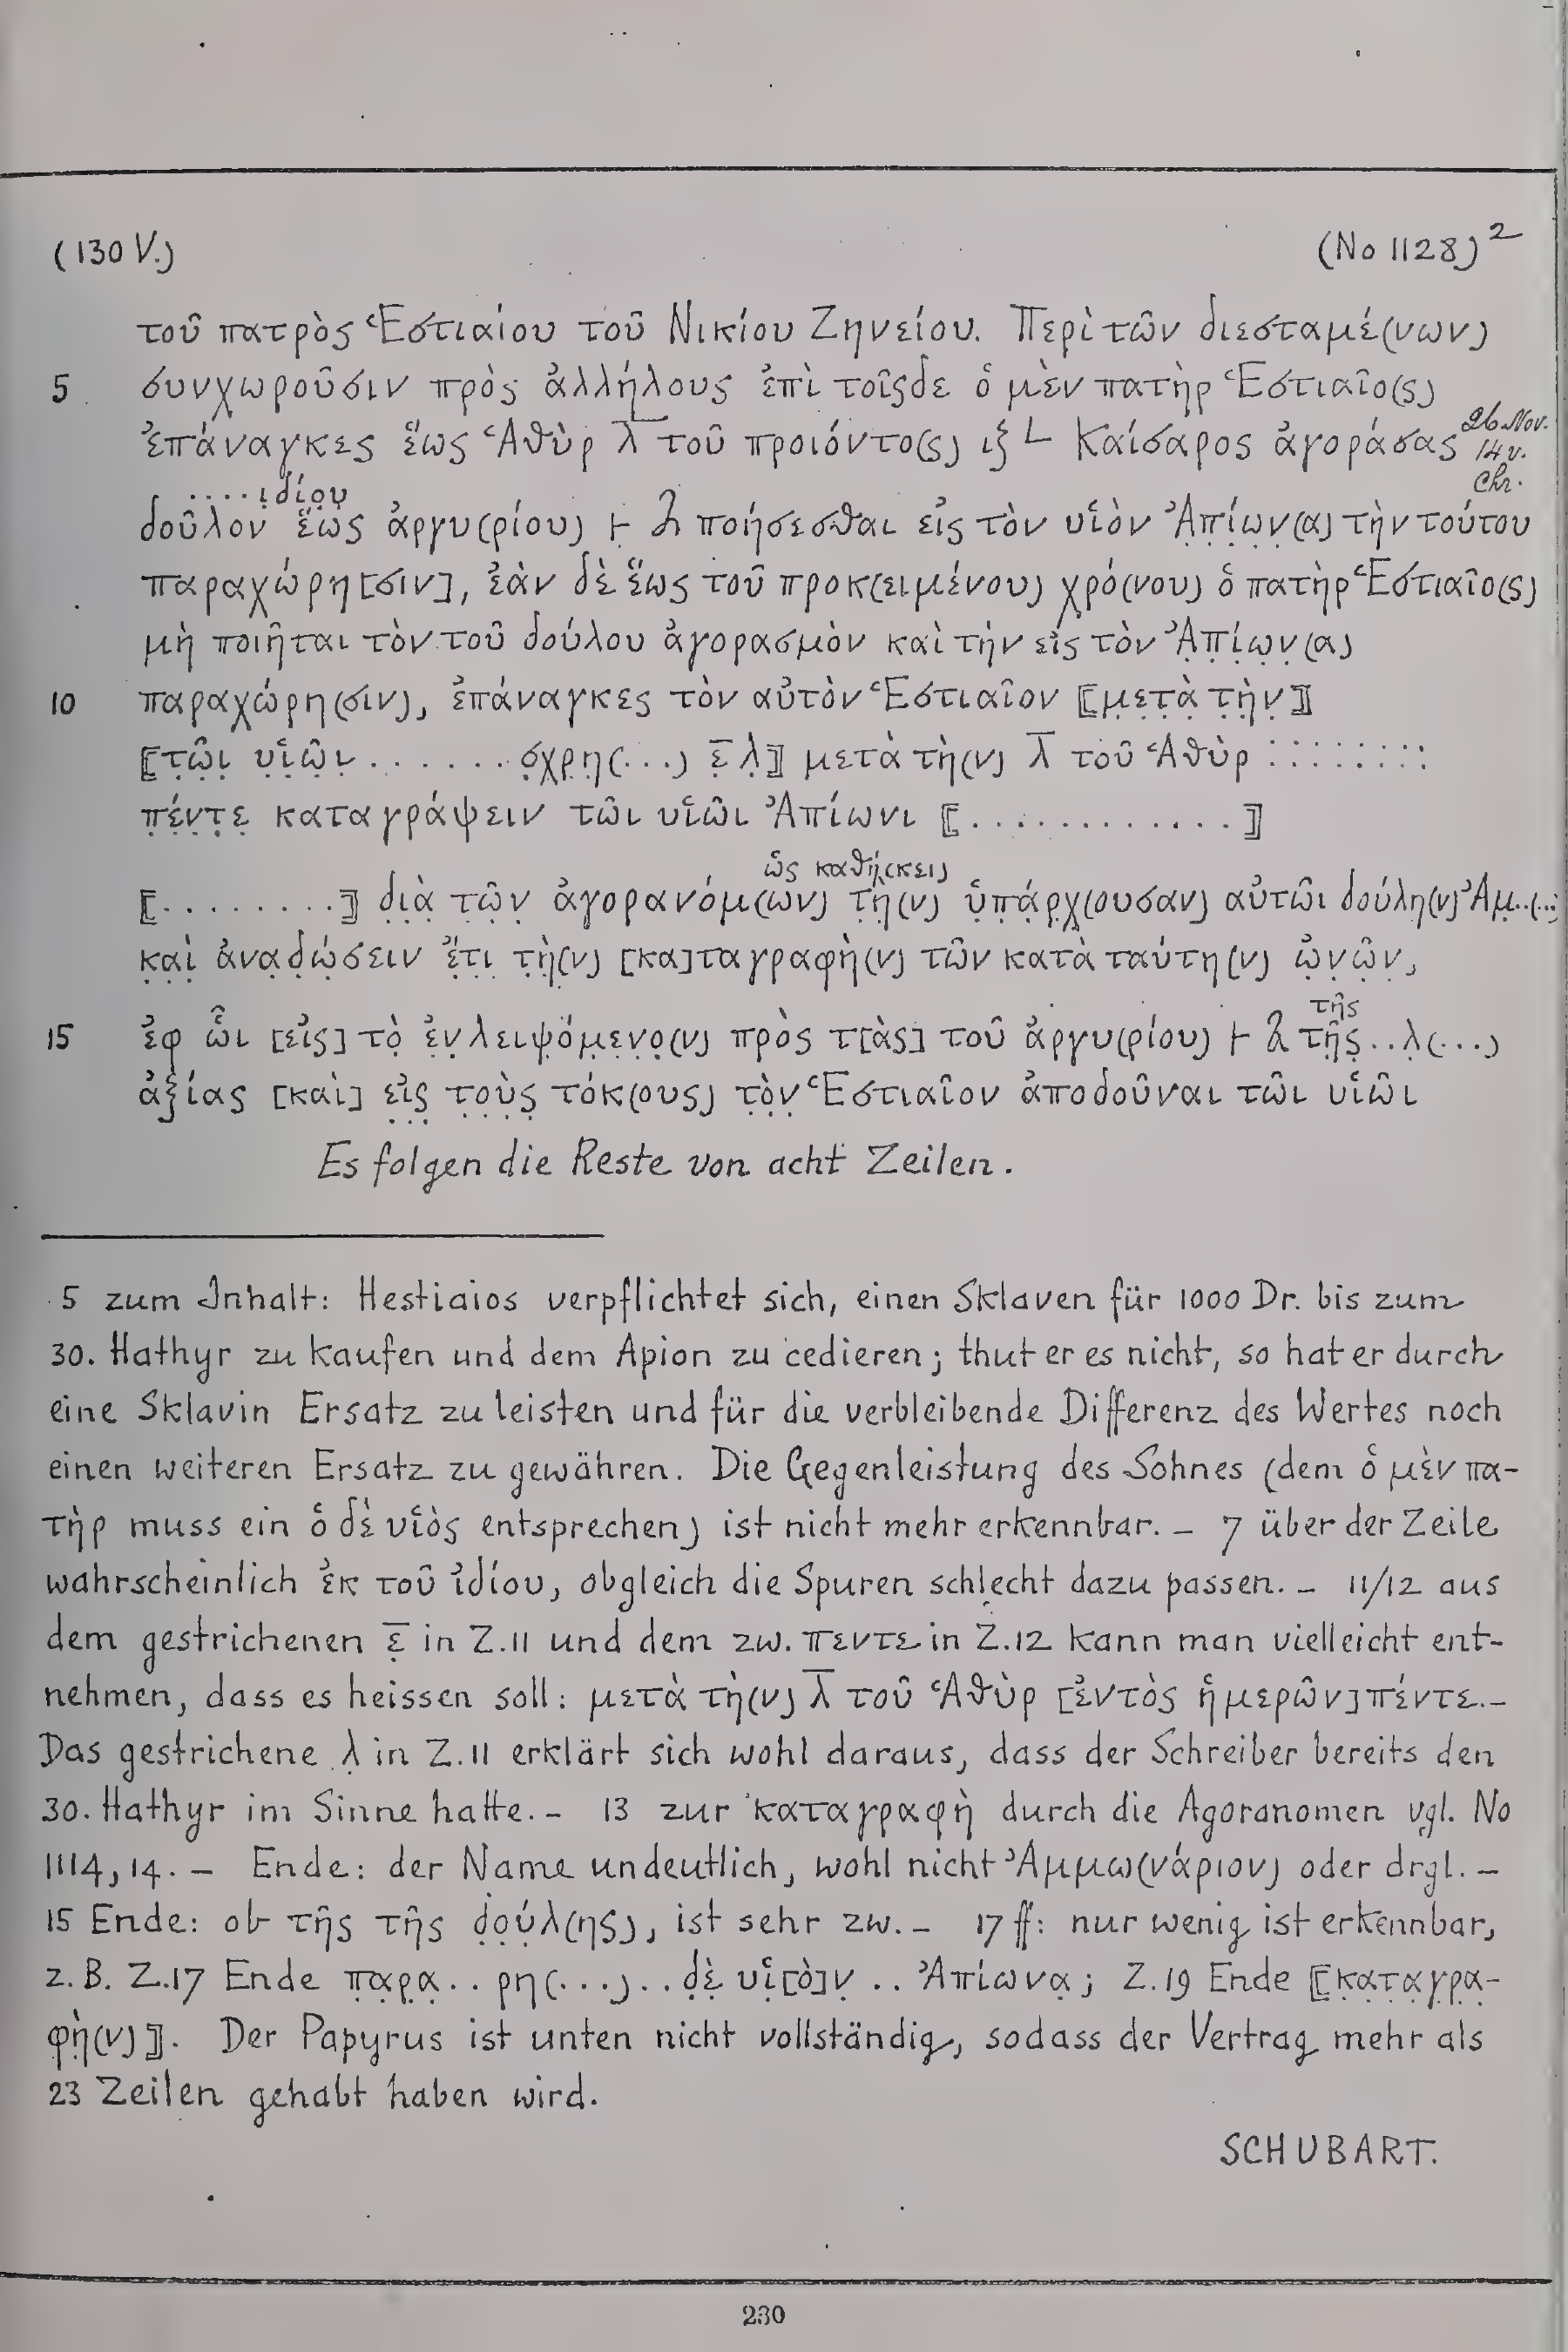 (130 V.) (No 1128)2
τοῦ πατρὸς Ἑστιαίου τοῦ Νικίου Ζηνείου. Περὶ τῶν διεσταμέ(νων)
5 συνχωροῦσιν πρὸς ἀλλήλους ἐπὶ τοῖςδε ὁ μὲν πατὴρ Ἑστιαῖο(ς)
ἐπάναγκες ἕως Ἁθὺρ λ̅ τοῦ προιόντο(ς) ιξ L Καίσαρος ἀγοράσας 26 Nov. 14 v. Chr.
....ι̣δίου̣
δοῦλον ἕως ἀργυ(ρίου) 𐅂 ποήσεσθαι εἰς τὸν υἱὸν Ἀ̣π̣ί̣ω̣ν̣(α) τὴν τούτου
παραχώρη[σιν], ἐὰν δὲ ἕως τοῦ προκ(ειμένου) χρό(νου) ὁ πατὴρ Ἑστιαῖο(ς)
μὴ ποιῆται τὸν τοῦ δούλου ἀγορασμὸν καὶ τὴν εἰς τὸν Ἀ̣π̣ί̣ω̣ν̣(α)
10 παραχώρη(σιν), ἐπάναγκες τὸν αὐτὸν Ἑστιαῖον ⟦μ̣ε̣τ̣ὰ̣ τ̣ὴ̣ν̣⟧
⟦τ̣ῶ̣ι̣ υ̣ἱ̣ῶ̣ι̣ ....... ο̣χ̣ρ̣η̣(...) ε̣̅ λ̣⟧ μετὰ τὴ(ν) λ̅ τοῦ Ἁθὺρ ........
π̣έ̣ν̣τ̣ε̣ καταγράψειν τῶι υἱῶι Ἀπίωνι ⟦............⟧
ὡς καθή(κει)
⟦........⟧ δ̣ι̣ὰ̣ τ̣ῶ̣ν̣ ἀγορανόμ(ων) τ̣ὴ̣(ν) ὑ̣π̣ά̣ρ̣χ̣(ουσαν) αὐτῶι δούλη(ν) Ἀμ̣..(...)
κ̣α̣ὶ̣ ἀναδ̣ώ̣σειν ἔ̣τ̣ι̣ τ̣ὴ̣(ν) [κα]ταγραφὴ(ν) τῶν κατὰ ταύτη(ν) ὠ̣ν̣ῶ̣ν̣,
τῆς
15 ἐφ ὧι [εἰς] τὸ̣ ἐ̣ν̣λειψ̣ό̣μ̣ε̣ν̣ο̣(ν) πρὸς τ[ὰς] τοῦ ἀργυ(ρίου) 𐅂 τῆ̣ς̣..λ(...)
ἀξίας [καὶ] ε̣ἰ̣ς̣ τ̣ο̣ὺ̣ς̣ τόκ(ους) τ̣ὸ̣ν̣ Ἑστιαῖον ἀποδοῦναι τῶι υἱῶι
Es folgen die Reste von acht Zeilen.
5 zum Inhalt: Hestiaios verpflichtet sich, einen Sklaven für 1000 Dr. bis zum
30. Hathyr zu kaufen und dem Apion zu cedieren; thut er es nicht, so hat er durch
eine Sklavin Ersatz zu leisten und für die verbleibende Differenz des Wertes noch
einen weiteren Ersatz zu gewähren. Die Gegenleistung des Sohnes (dem ὁ μὲν πα-
τὴρ muss ein ὁ δὲ υἱὸς entsprechen) ist nicht mehr erkennbar. – 7 über der Zeile
wahrscheinlich ἐκ τοῦ ἰδίου, obgleich die Spuren schlecht dazu passen. – 11/12 aus
dem gestrichenen ε̣̅ in Z.11 und dem zw. πεντε in Z.12 kann man vielleicht ent-
nehmen, dass es heissen soll: μετὰ τὴ(ν) λ̅ τοῦ Ἁθὺρ [ἐντὸς ἡμερῶν] πέντε. –
Das gestrichene λ in Z.11 erklärt sich wohl daraus, dass der Schreiber bereits den
30. Hathyr im Sinne hatte. – 13 zur καταγραφὴ durch die Agoranomen vgl. No
1114, 14. – Ende: der Name undeutlich, wohl nicht Ἀμμω(νάριον) oder drgl. –
15 Ende: ob τῆς τῆς δ̣ο̣ύ̣λ(ης), ist sehr zw. – 17 ff: nur wenig ist erkennbar,
z. B. Z.17 Ende π̣α̣ρ̣α̣..ρη(...)..δ̣ὲ̣ υἱ̣[ὸ]ν̣ .. Ἀπίωνα̣; Z.19 Ende ⟦κ̣α̣τ̣α̣γ̣ρ̣α̣-
φ̣ὴ̣(ν)⟧. Der Papyrus ist unten nicht vollständig, sodass der Vertrag mehr als
23 Zeilen gehabt haben wird.
SCHUBART.
230